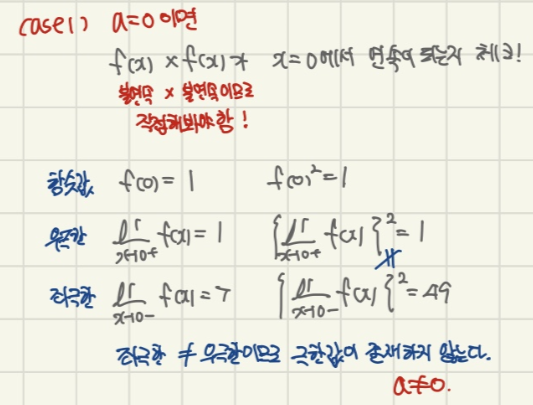 case1) a=0 이면
f(x) × f(x)가 x=0에서 연속이 되는지 체크!
불연속 × 불연속이므로
직접해봐야 함!
함숫값 f(0)=1 f(0)²=1
우극한 lim x→0+ f(x)=1 { lim x→0+ f(x) }²=1
좌극한 lim x→0- f(x)=7 { lim x→0- f(x) }²=49
좌극한 ≠ 우극한이므로 극한값이 존재하지 않는다.
a≠0.